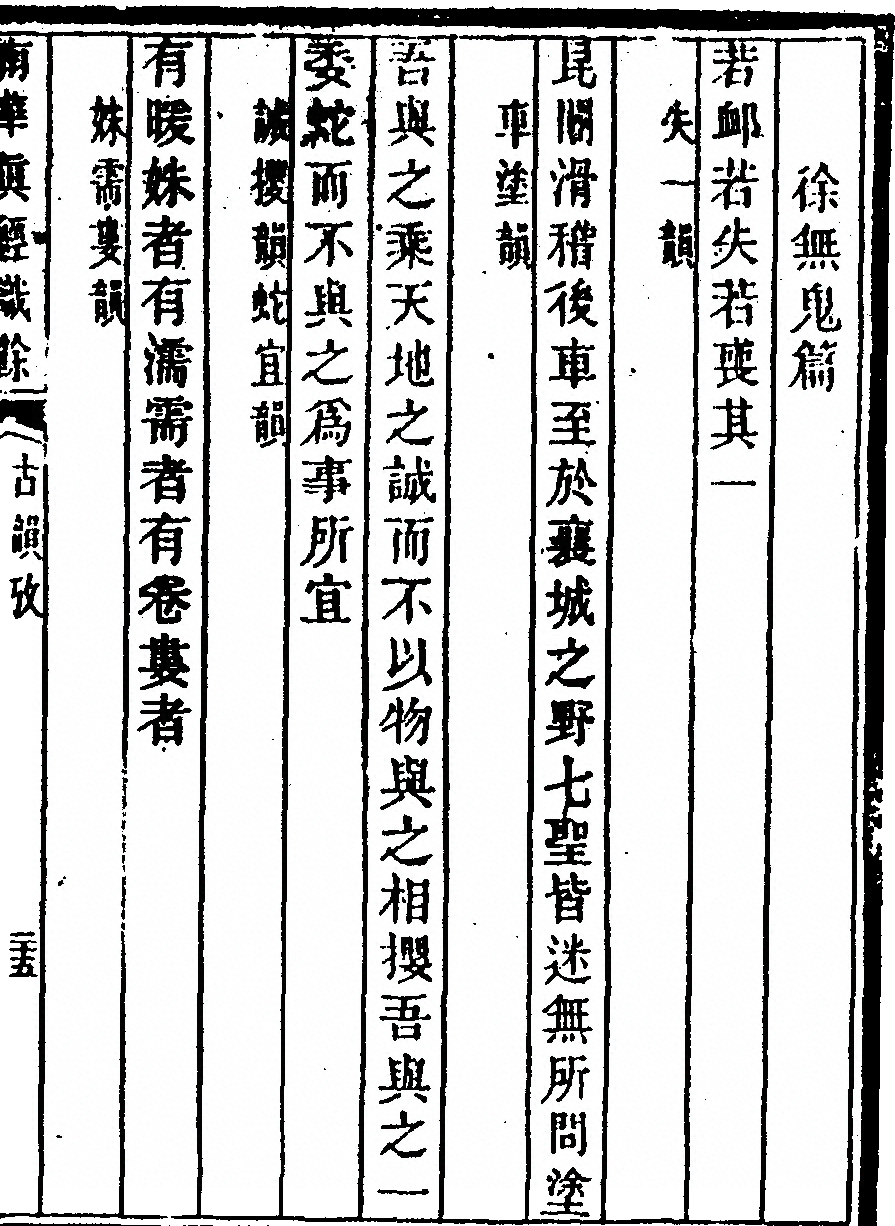 徐無鬼篇
若卹若失若喪其一
失一韻
昆閽滑稽後車至於襄城之野七聖皆迷無所問塗
車塗韻
吾與之乘天地之誠而不以物與之相攖吾與之一
委蛇而不與之爲事所宜
誠攖韻蛇宜韻
有暖姝者有濡需者有卷婁者
姝需婁韻
南華眞經識餘
古韻攷
三十五